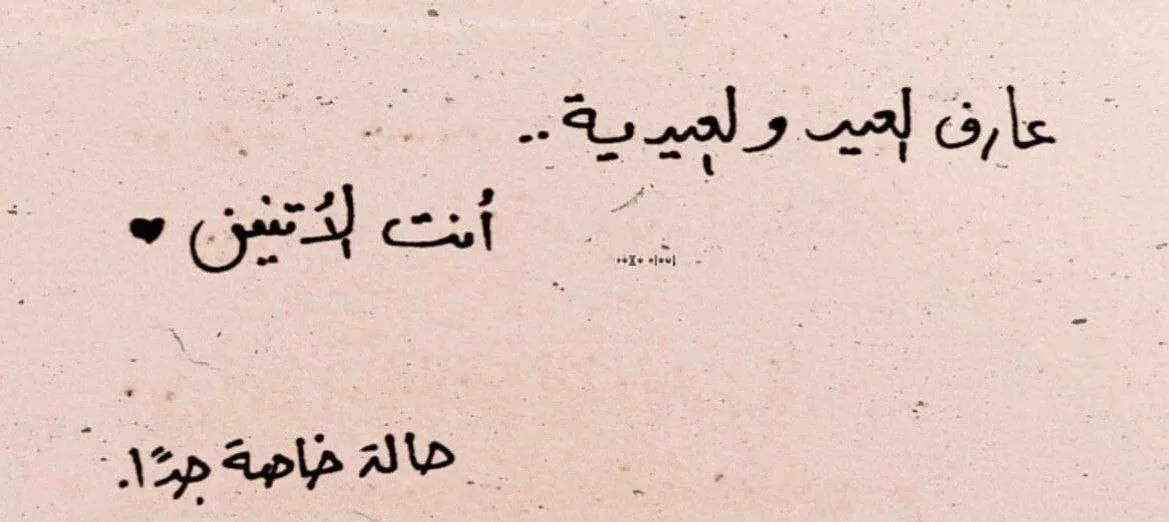 عارف العيد والعيدية..
أنت الأتنين ♥
حالة خاصة جدًا.